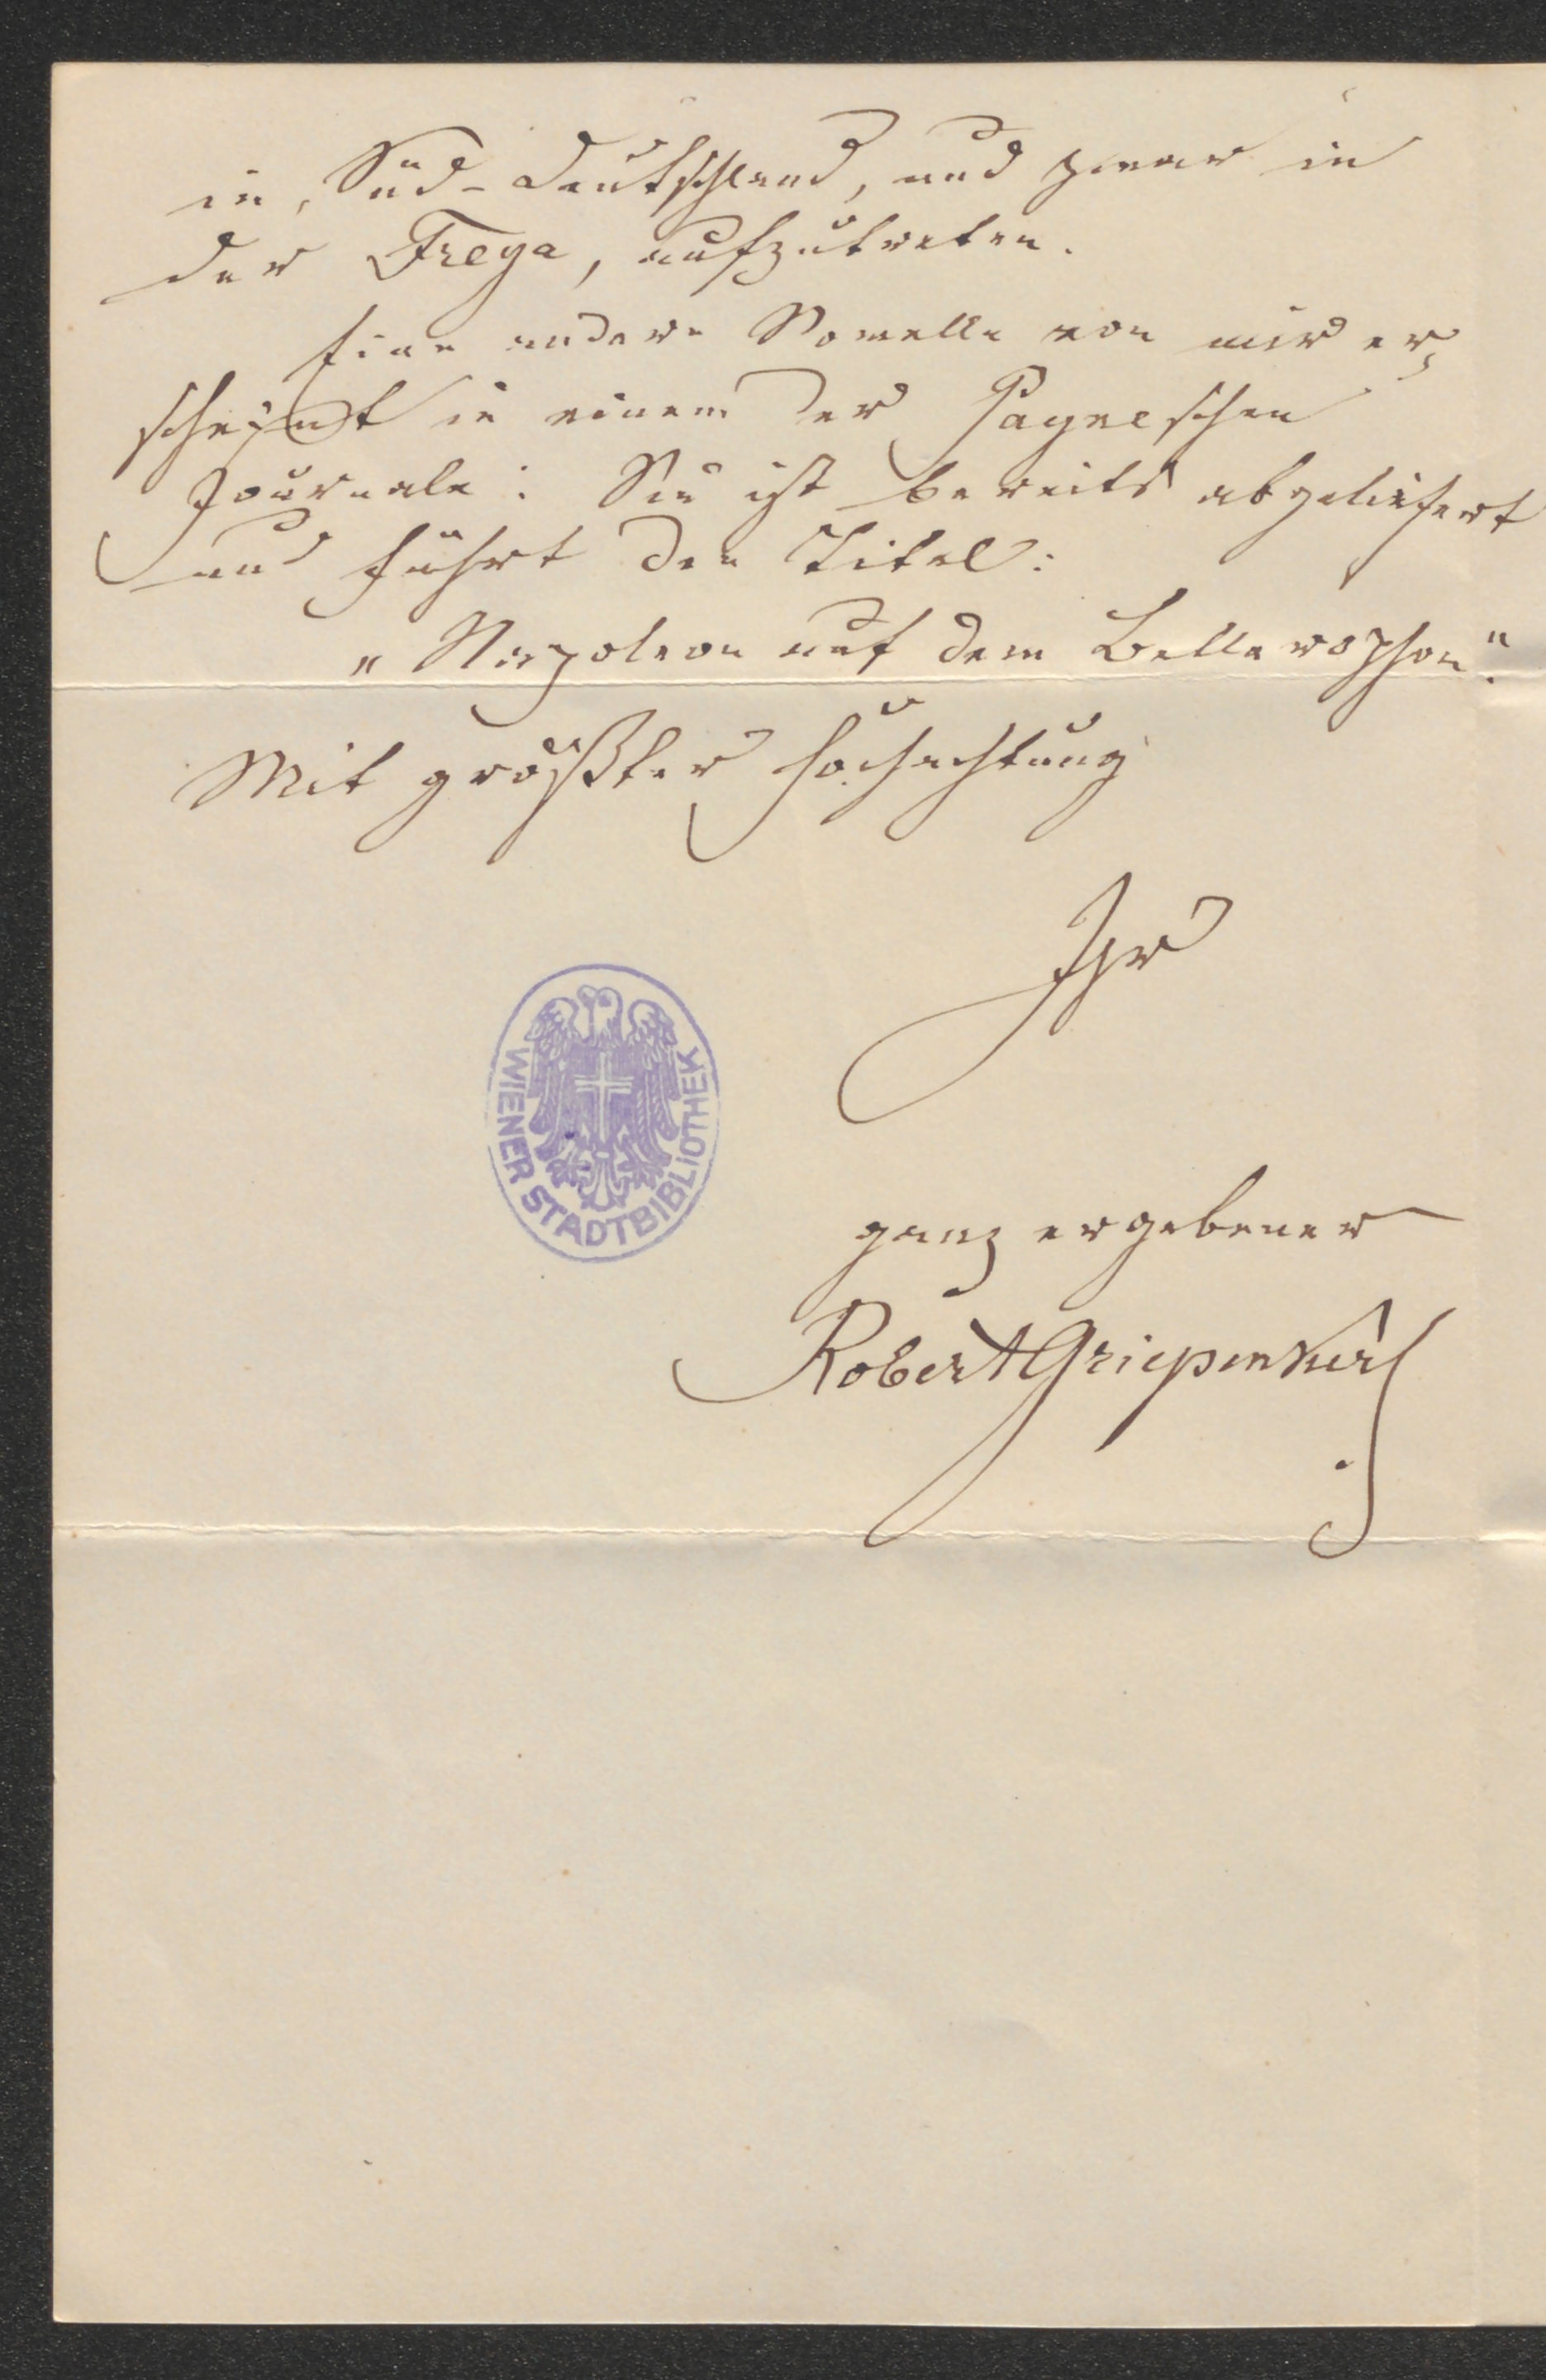 in Süd-Deutschland, und zwar in
der Freya, aufzutreten.
Eine andere Novelle von mir er-
scheint in einem der Payneschen
Journale: Sie ist bereits abgeliefert
und führt den Titel:
„Napoleon auf dem Bellerophon“.
Mit größter Hochachtung
Ihr
ganz ergebener
Robert Griepenkerl
WIENER STADTBIBLIOTHEK